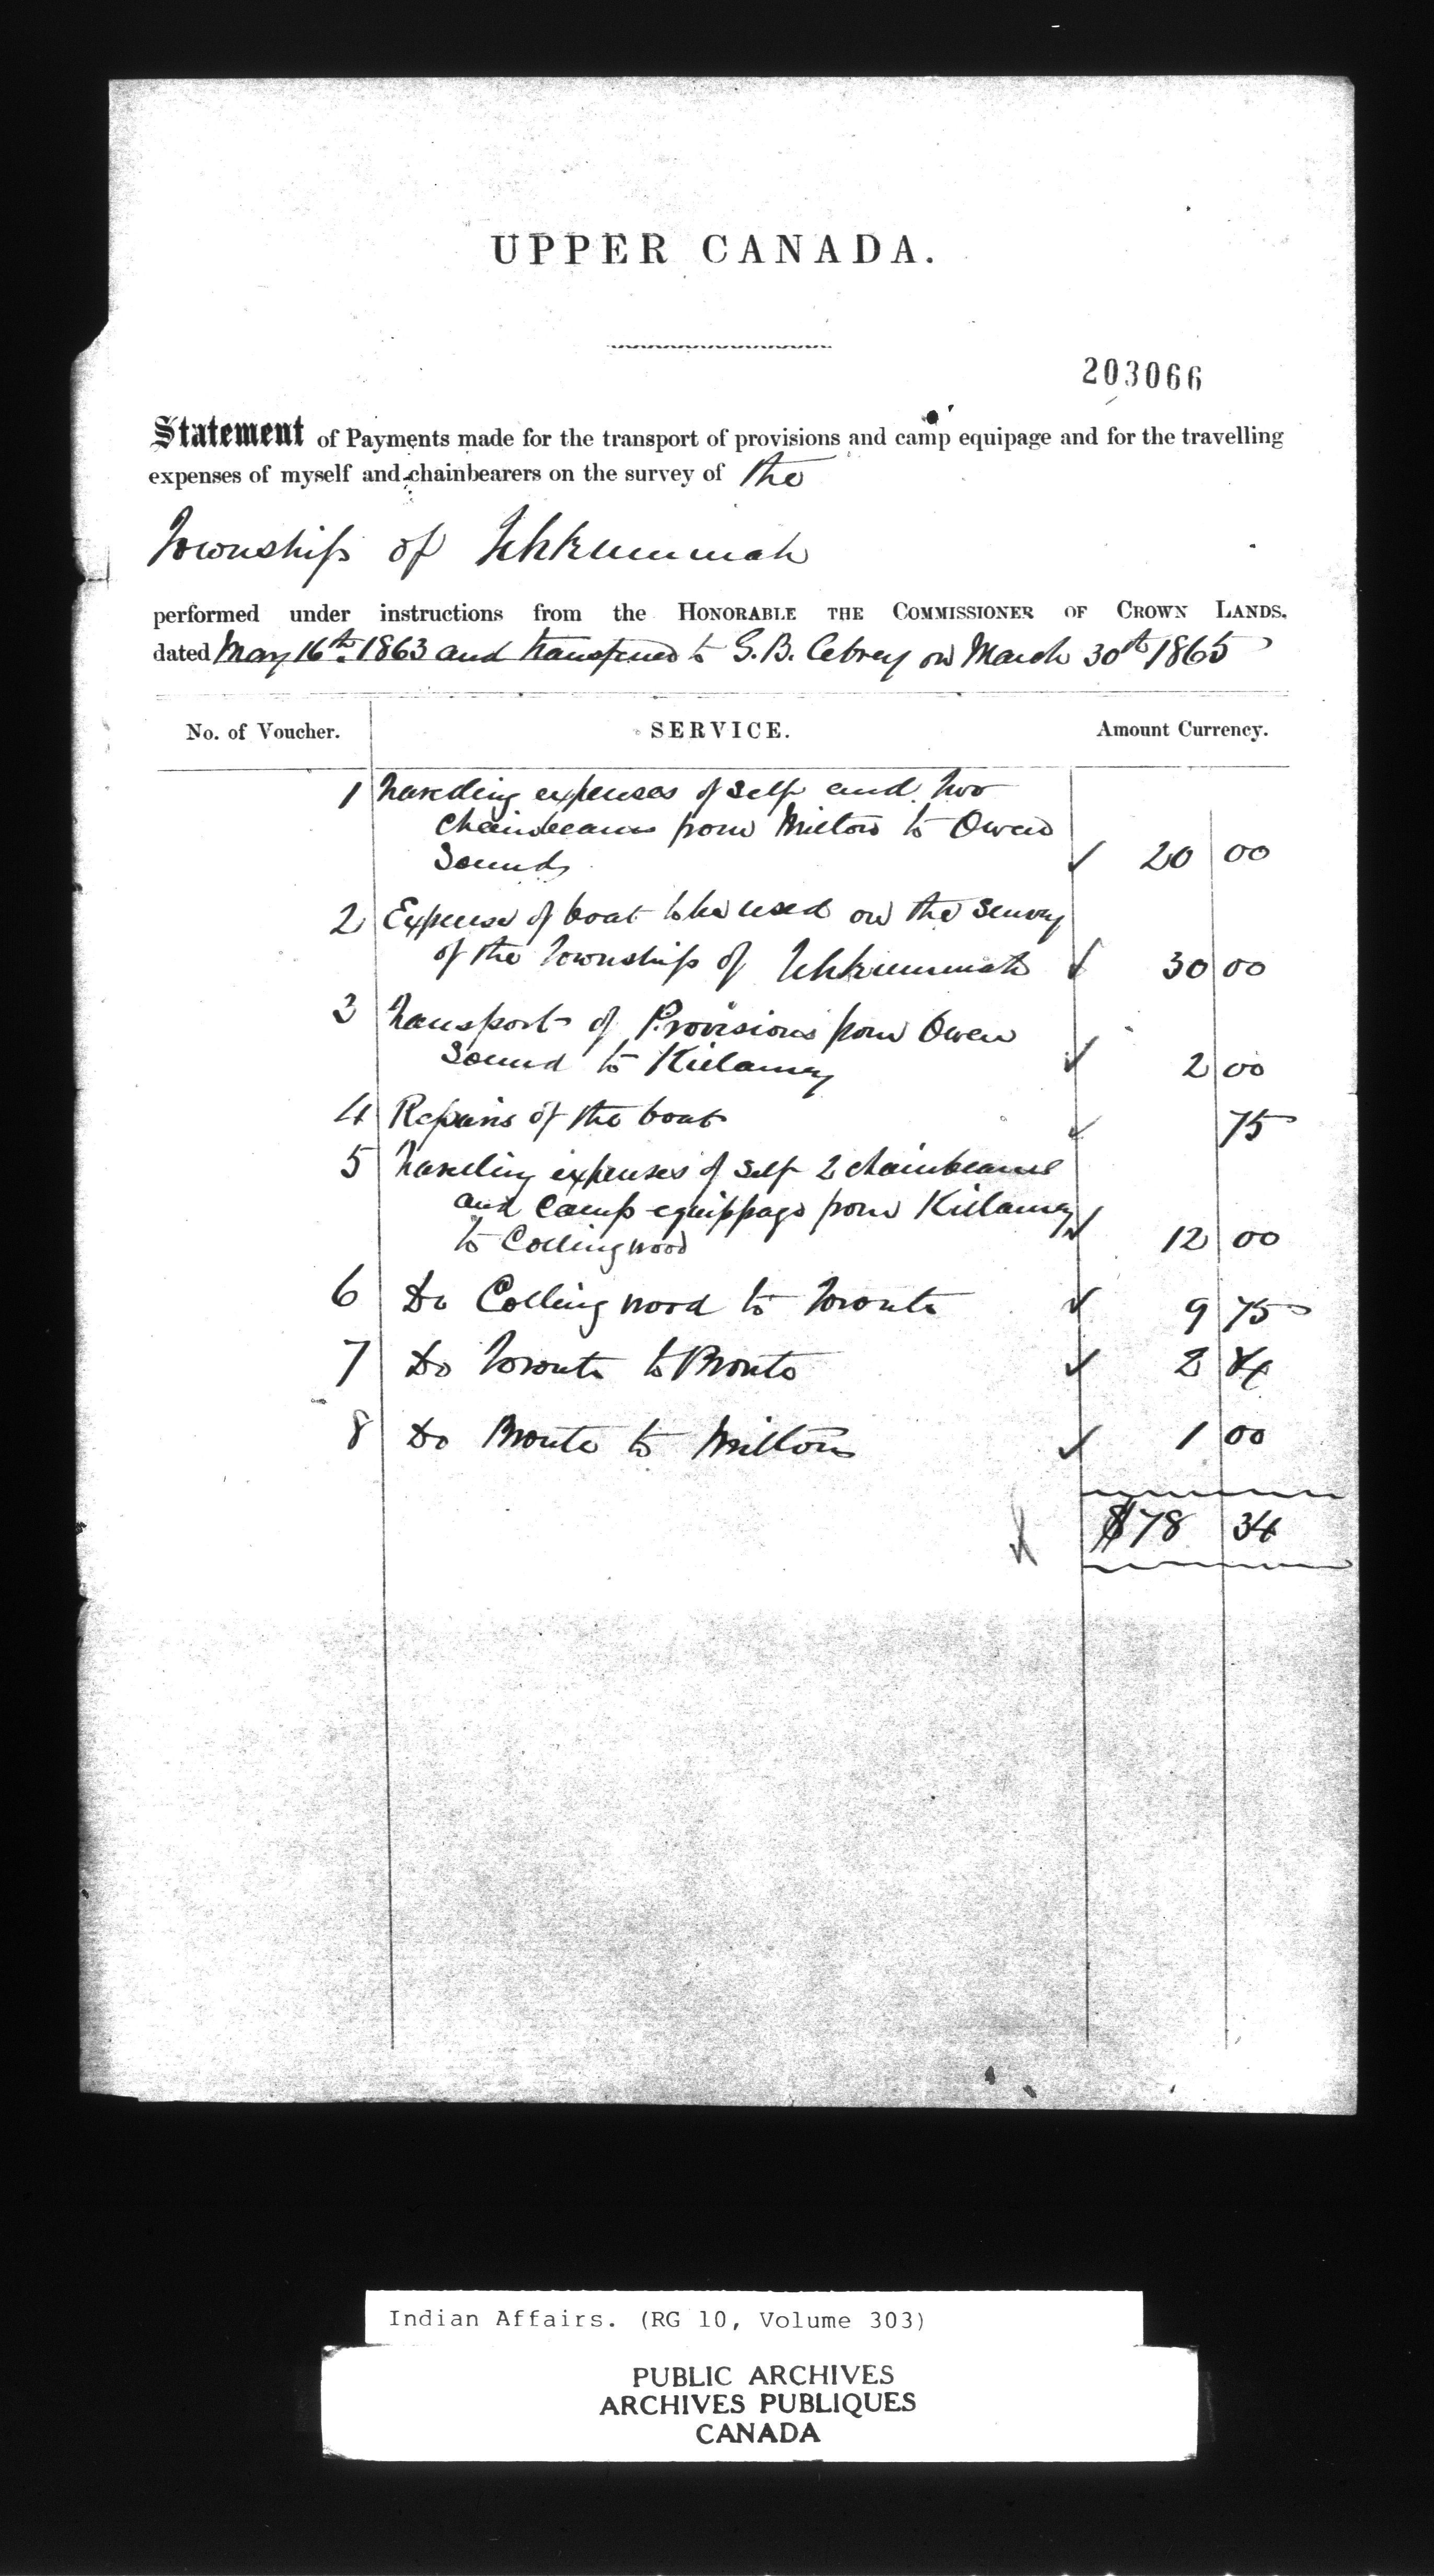 UPPER CANADA.
203066
Statement of Payments made for the transport of provisions and camp equipage and for the travelling
expenses of myself and chainbearers on the survey of the
Township of Tehkummah
performed under instructions from the HONORABLE THE COMMISSIONER OF CROWN LANDS.
dated May 16th 1863 and transferred to G. B. Abrey on March 30th 1865
No. of Voucher. SERVICE. Amount Currency.
1 Traveling expenses of Self and two
Chainbearers from Milton to Owen
Sound 20 00
2 Expense of boat to be used on the Survey
of the Township of Tehkummah 30 00
3 Transport of Provisions from Owen
Sound to Killarney 2 00
4 Repairs of the boat 75
5 Traveling expenses of Self 2 chainbearers
and Camp equippage from Killarney
to Collingwood 12 00
6 Do Collingwood to Toronto 9 75
7 Do Toronto to Bronte 2 84
8 Do Bronte to Milton 1 00
$78 34
Indian Affairs. (RG 10, Volume 303)
PUBLIC ARCHIVES
ARCHIVES PUBLIQUES
CANADA